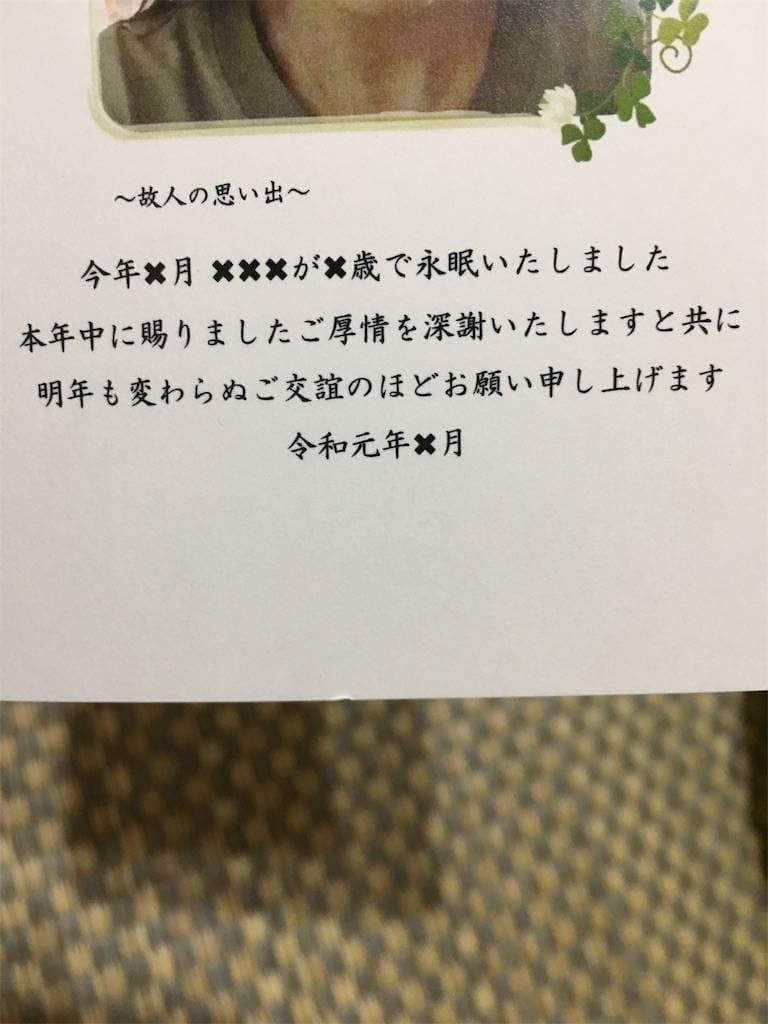 ～故人の思い出～
今年✖月 ✖✖✖が✖歳で永眠いたしました
本年中に賜りましたご厚情を深謝いたしますと共に
明年も変わらぬご交誼のほどお願い申し上げます
令和元年✖月